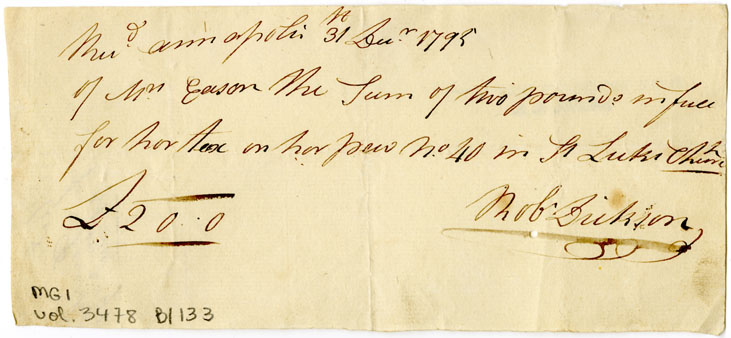 Recd annapolis 31st Decr 1795
of Mrs Eason the Sum of two pounds in full
for hor tax on hor pew No 40 in St Luks Chur
£2 0..0
Robt Dickson
MG1
vol. 3478 B/133